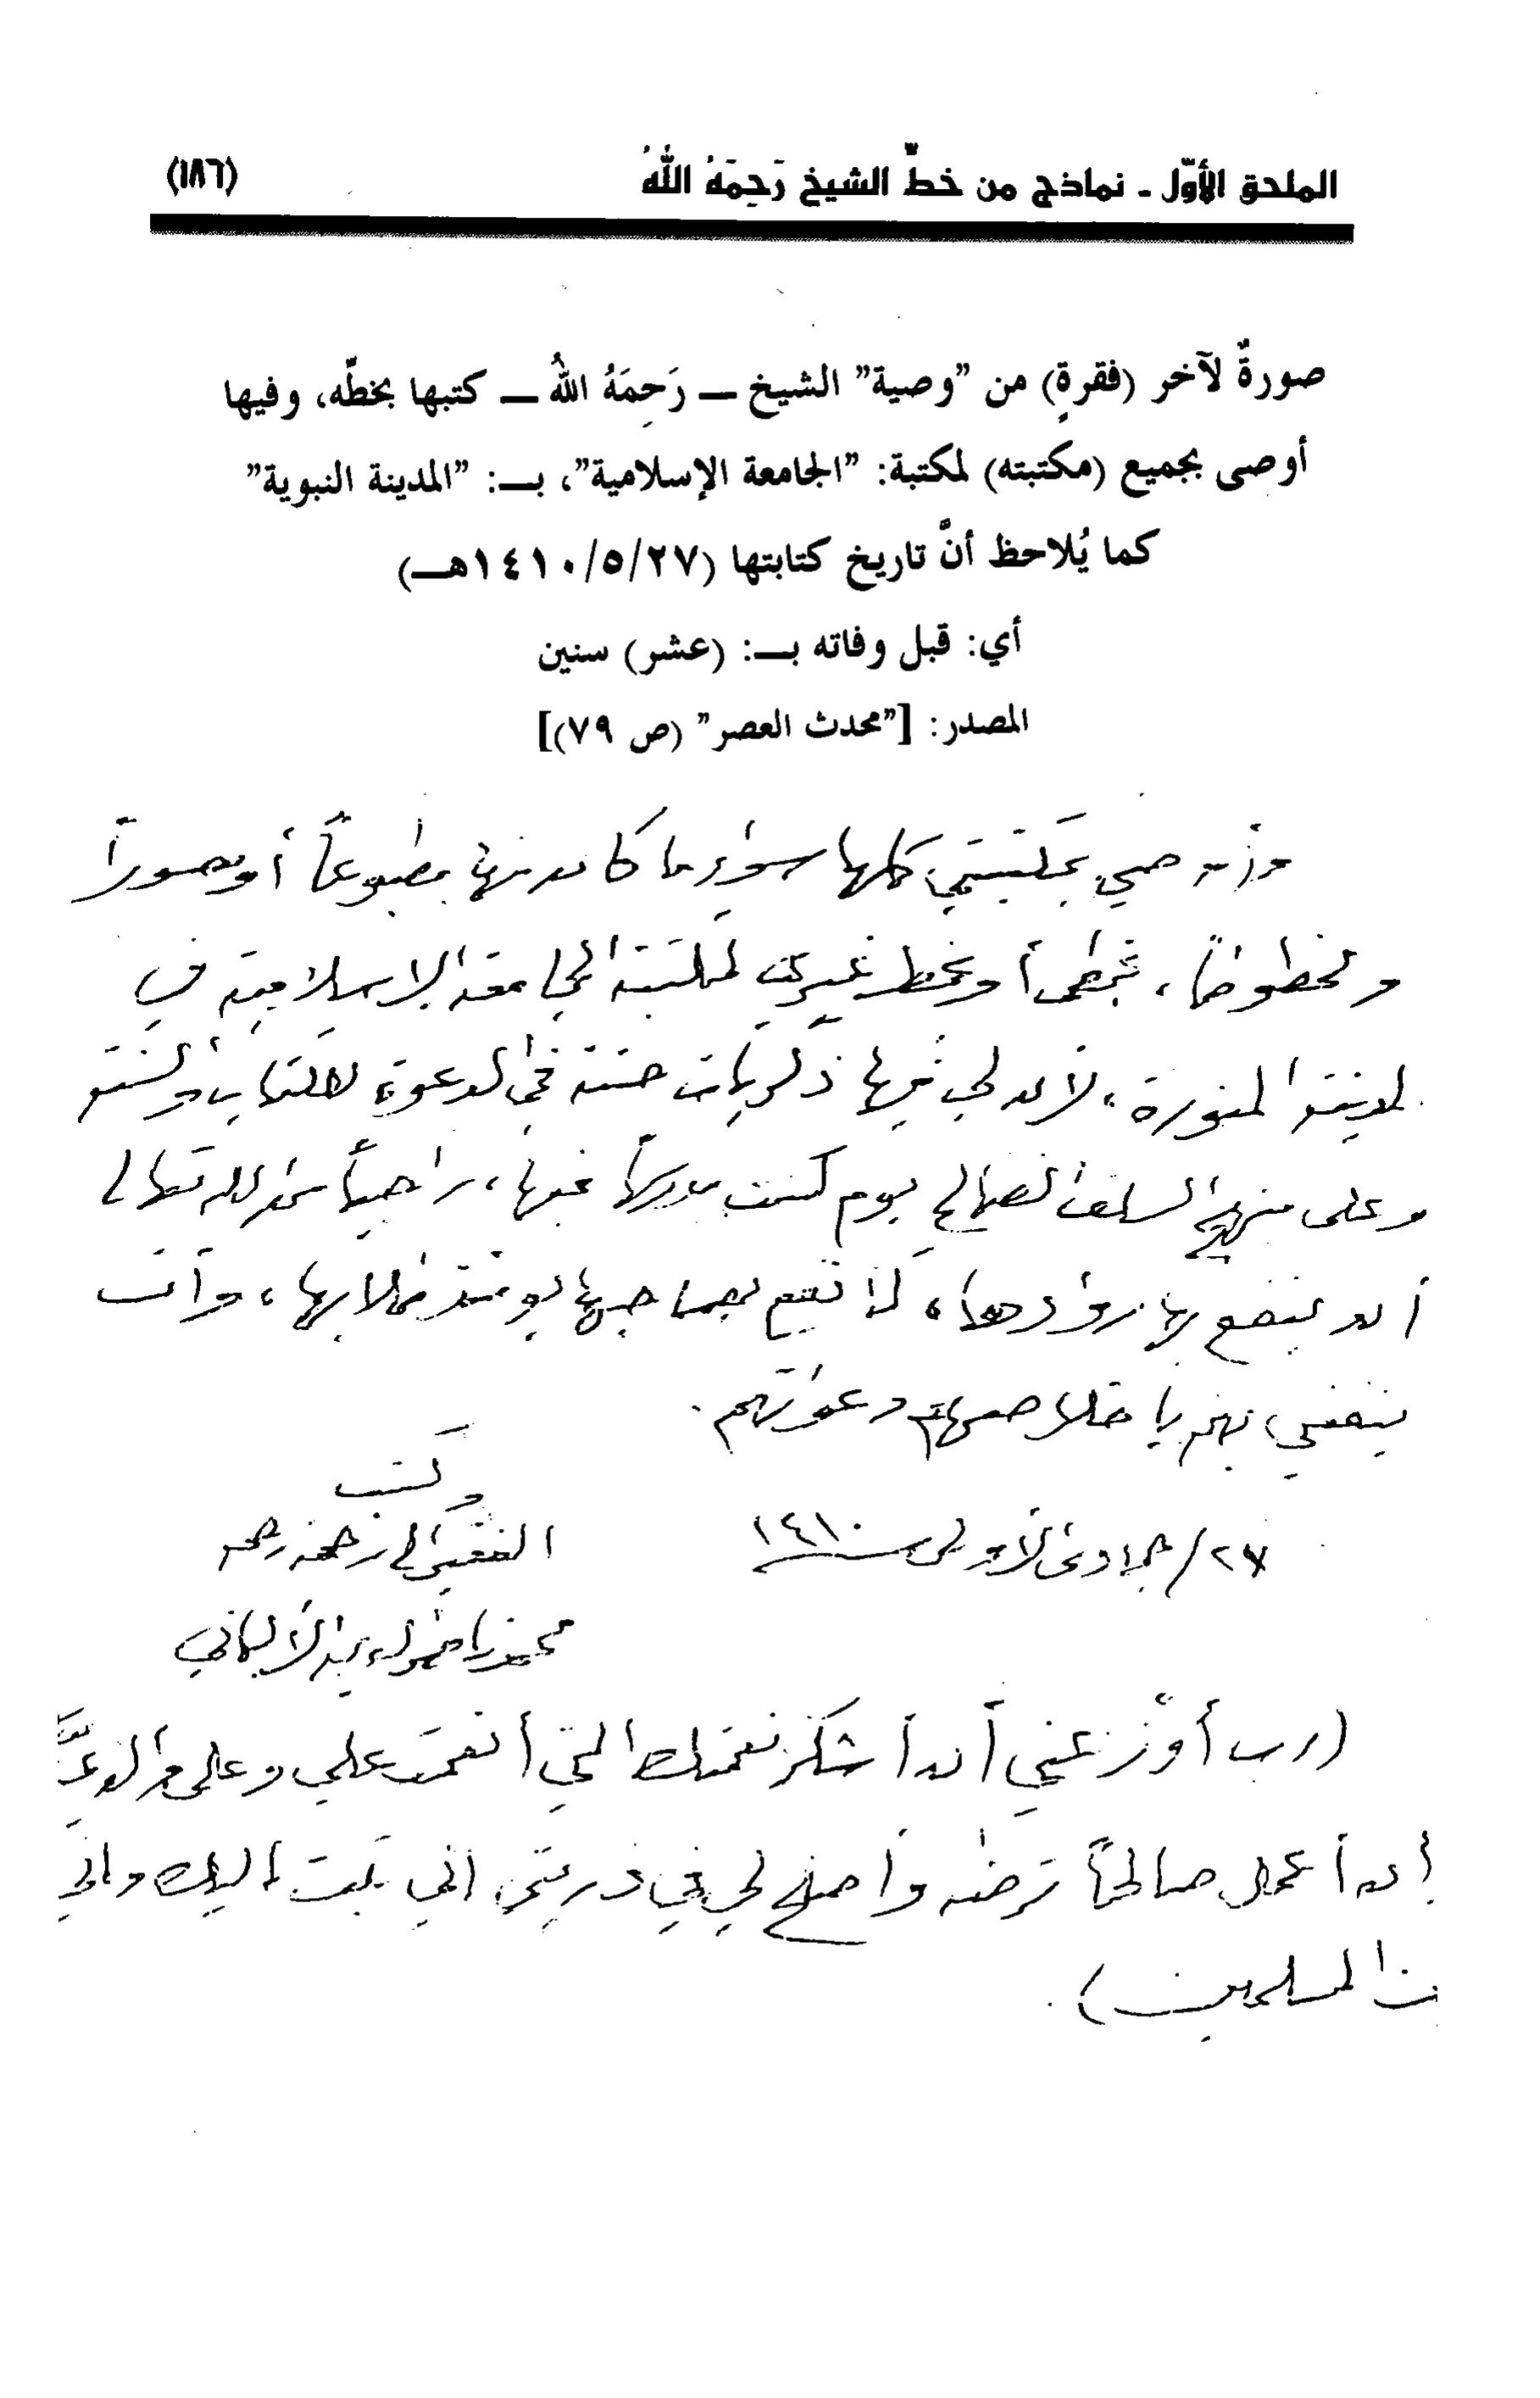 الملحق الأوّل - نماذج من خطّ الشيخ رَحِمَهُ اللهُ (١٨٦)
صورةٌ لآخر (فقرةٍ) من "وصية" الشيخ ــ رَحِمَهُ اللهُ ــ كتبها بخطّه، وفيها
أوصى بجميع (مكتبته) لمكتبة: "الجامعة الإسلامية"، بــ: "المدينة النبوية"
كما يُلاحظ أنَّ تاريخ كتابتها (١٤١٠/٥/٢٧هــ)
أي: قبل وفاته بــ: (عشر) سنين
المصدر: ["محدث العصر" (ص ٧٩)]
وأوصي بمكتبتي كلها سواء ما كان منها مطبوعاً أو مصوراً
و مخطوطاً، بخطي أو بخط غيري لمكتبة الجامعة الإسلامية في
لمدينة المنورة، لأن لي فيها ذكريات حسنة في الدعوة للكتاب والسنة
وعلى منهج السلف الصالح يوم كنت مدرساً فيها، راجياً من الله تعالى
أن ينفع بها روادها، كما نفع بصاحبها يومئذ طلابها، وأن
ينفعني بهم بإخلاصهم ودعواتهم.
وكتب
٢٧/ جمادى الأولى سنة ١٤١٠ الفقير إلى رحمة ربه
محمد ناصر الدين الألباني
(رب أوزعني أن أشكر نعمتك التي أنعمت علي وعلى والديَّ
أن أعمل صالحاً ترضاه وأصلح لي في ذريتي إني تبت إليك وإني
من المسلمين).